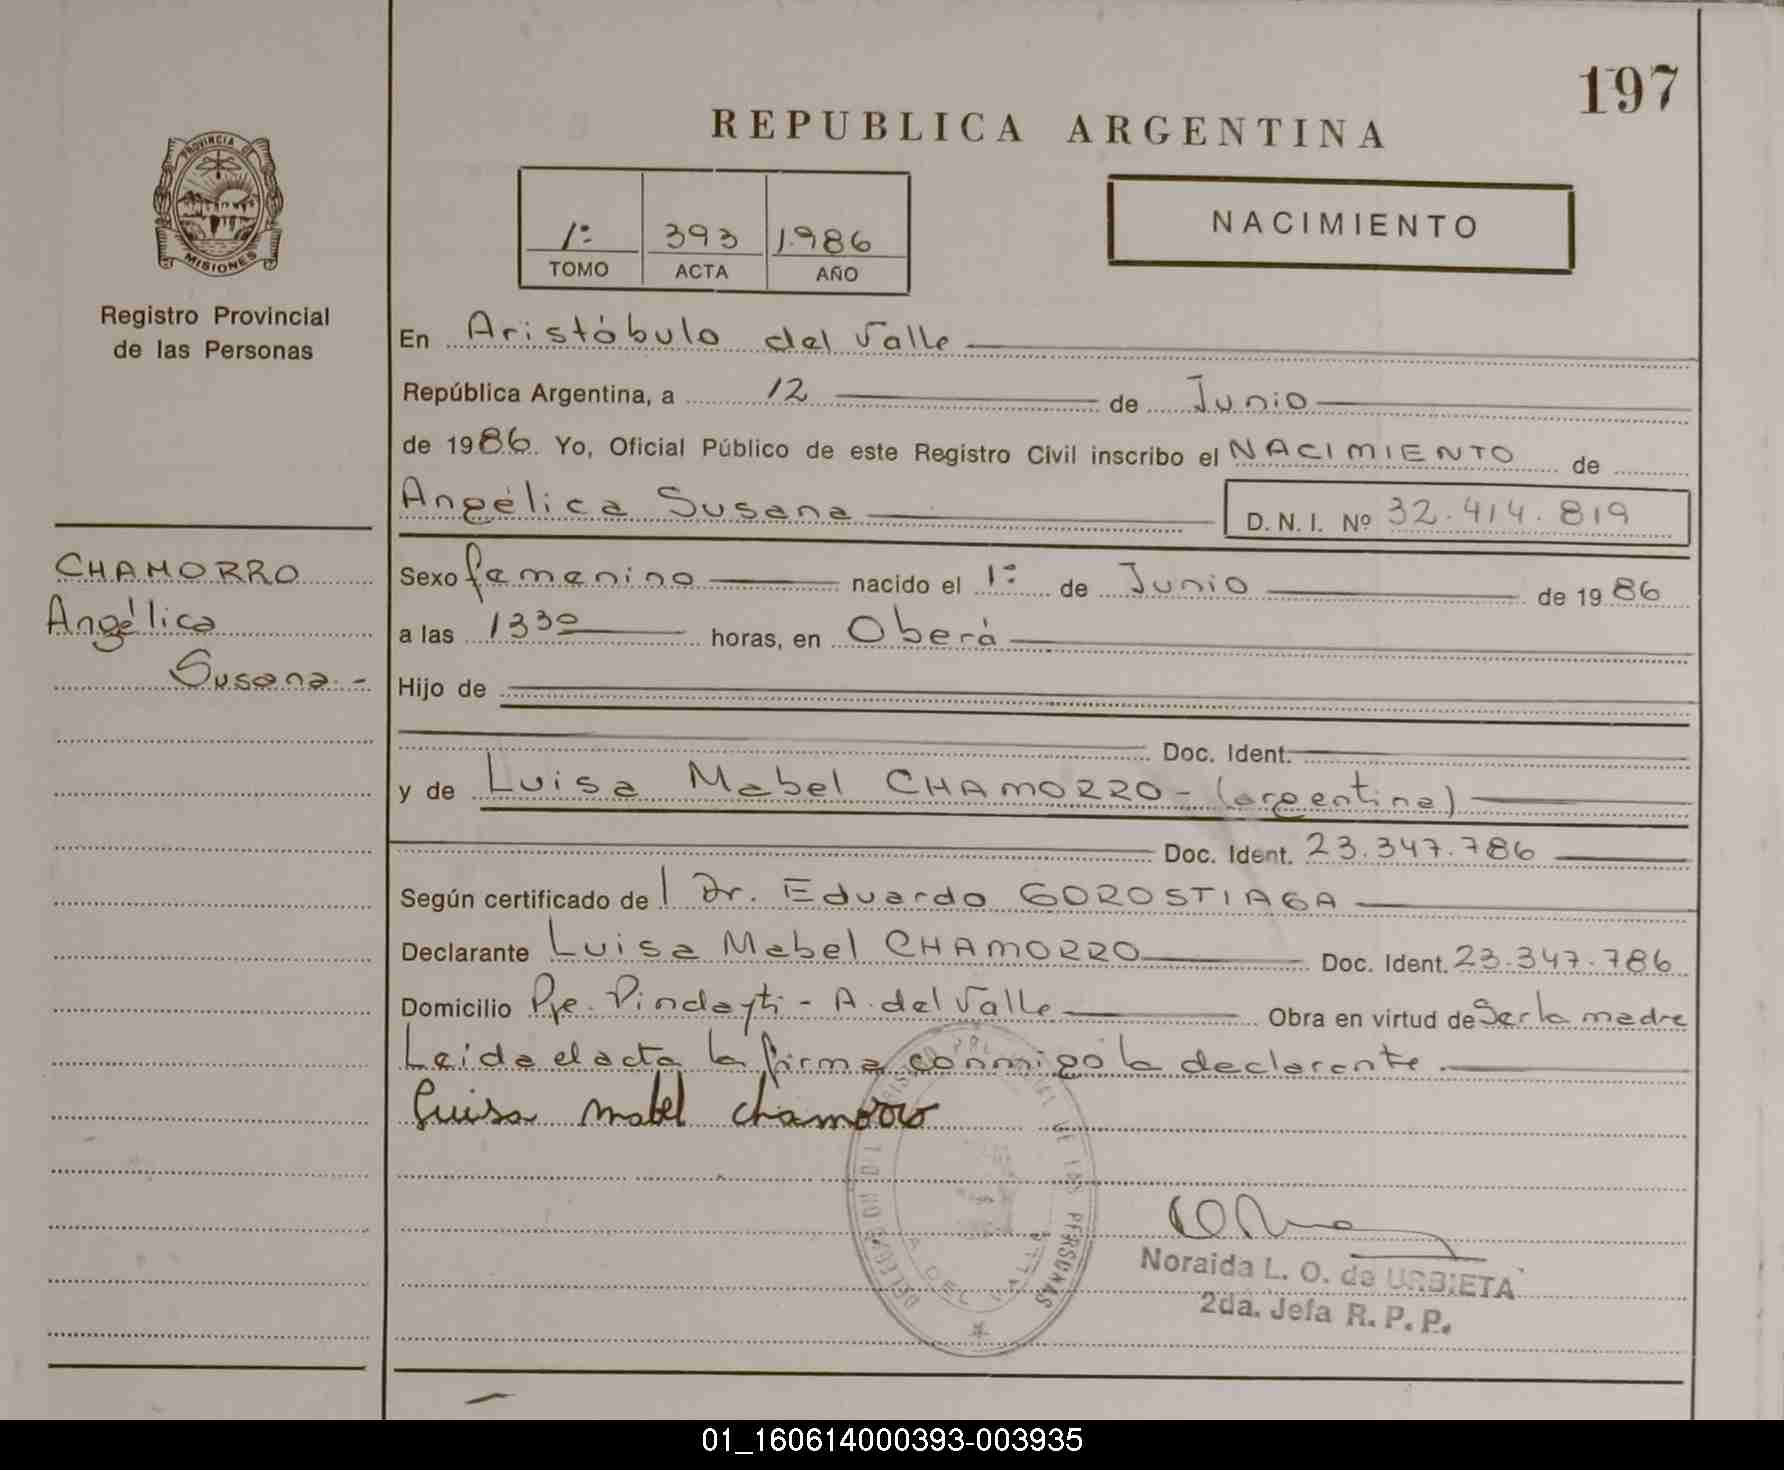 197
REPUBLICA ARGENTINA
PROVINCIA DE
MISIONES
Registro Provincial
de las Personas
1º 393 1.986
TOMO ACTA AÑO
NACIMIENTO
En Aristóbulo del Valle
República Argentina, a 12 de Junio
de 1986. Yo, Oficial Público de este Registro Civil inscribo el NACIMIENTO de
Angélica Susana D. N. I. Nº 32.414.819
CHAMORRO
Angélica
Susana.-
Sexo femenino nacido el 1º de Junio de 1986
a las 13 30 horas, en Oberá
Hijo de
Doc. Ident.
y de Luisa Mabel CHAMORRO - (argentina)
Doc. Ident. 23.347.786
Según certificado del Dr. Eduardo GOROSTIAGA
Declarante Luisa Mabel CHAMORRO Doc. Ident. 23.347.786
Domicilio Pje. Pindayti - A. del Valle Obra en virtud de Ser la madre
Leida el acta la firma conmigo la declarante.
Luisa mabel chamorro
DE LAS PERSONAS
A. DEL VALLE
Noraida L. O. de URBIETA
2da. Jefa R. P. P.
01_160614000393-003935